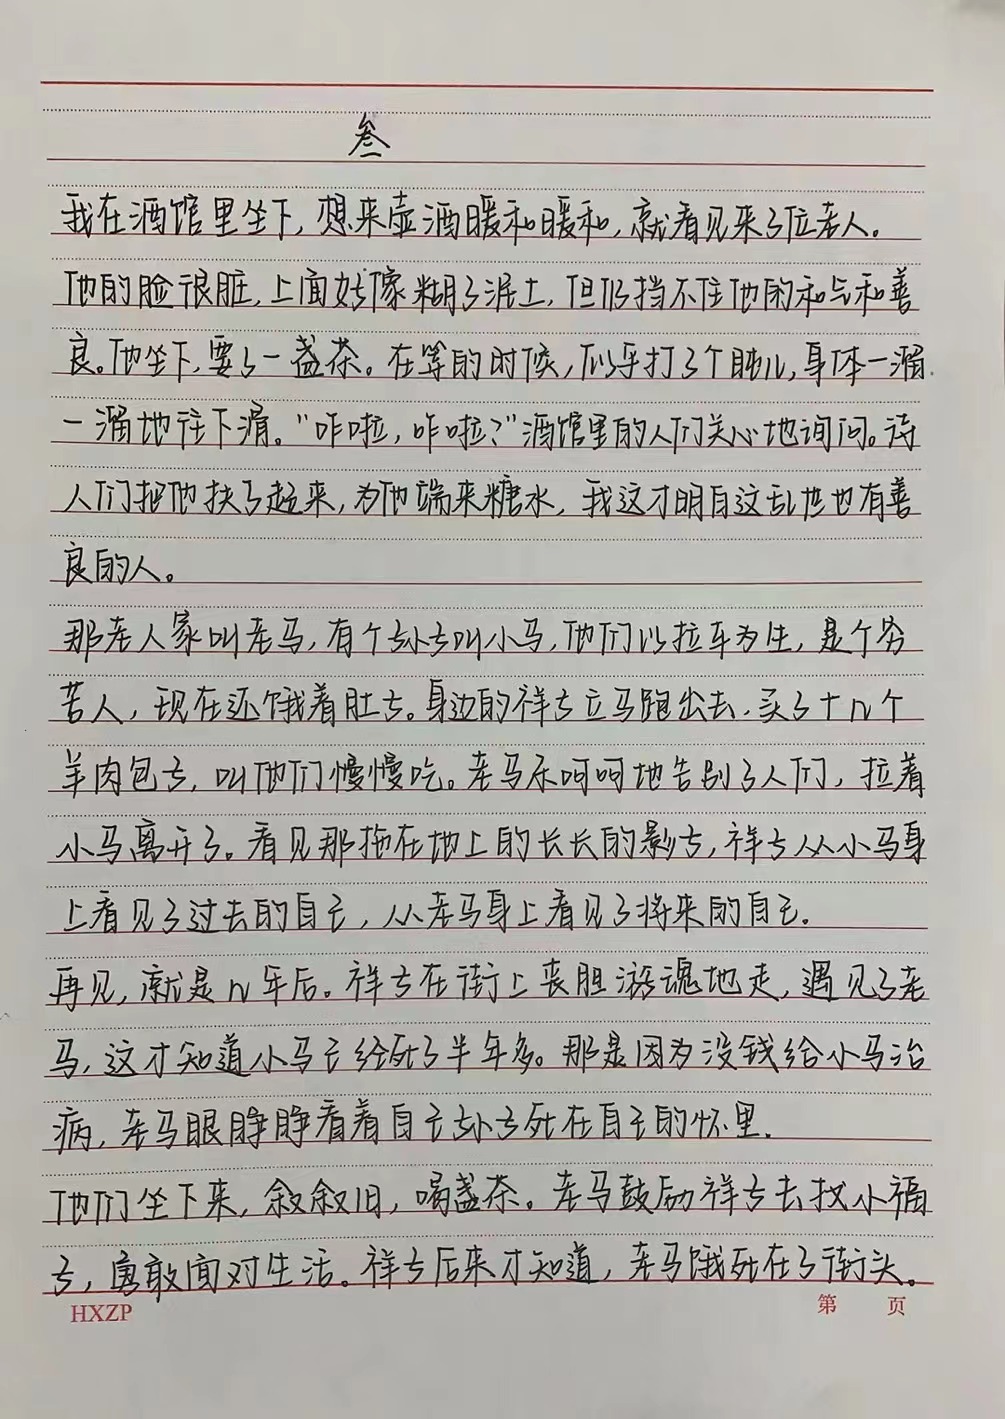 叁
我在酒馆里坐下，想来壶酒暖和暖和，就看见来了位老人。
他的脸很脏，上面好像糊了泥土，但仍挡不住他的和气和善
良。他坐下，要了一盏茶。在等的时候，似乎打了个盹儿，身体一溜
一溜地往下滑。“咋啦，咋啦？”酒馆里的人们关心地询问。待
人们把他扶了起来，为他端来糖水，我这才明白这乱世也有善
良的人。
那老人家叫老马，有个孙子叫小马，他们以拉车为生，是个穷
苦人，现在还饿着肚子。身边的祥子立马跑出去，买了十几个
羊肉包子，叫他们慢慢吃。老马乐呵呵地告别了人们，拉着
小马离开了。看见那拖在地上的长长的影子，祥子从小马身
上看见了过去的自己，从老马身上看见了将来的自己.
再见，就是几年后。祥子在街上丧胆游魂地走，遇见了老
马，这才知道小马已经死了半年多。那是因为没钱给小马治
病，老马眼睁睁看着自己孙子死在自己的怀里.
他们坐下来，叙叙旧，喝盏茶。老马鼓励祥子去找小福
子，勇敢面对生活。祥子后来才知道，老马饿死在了街头。
HXZP 第 页